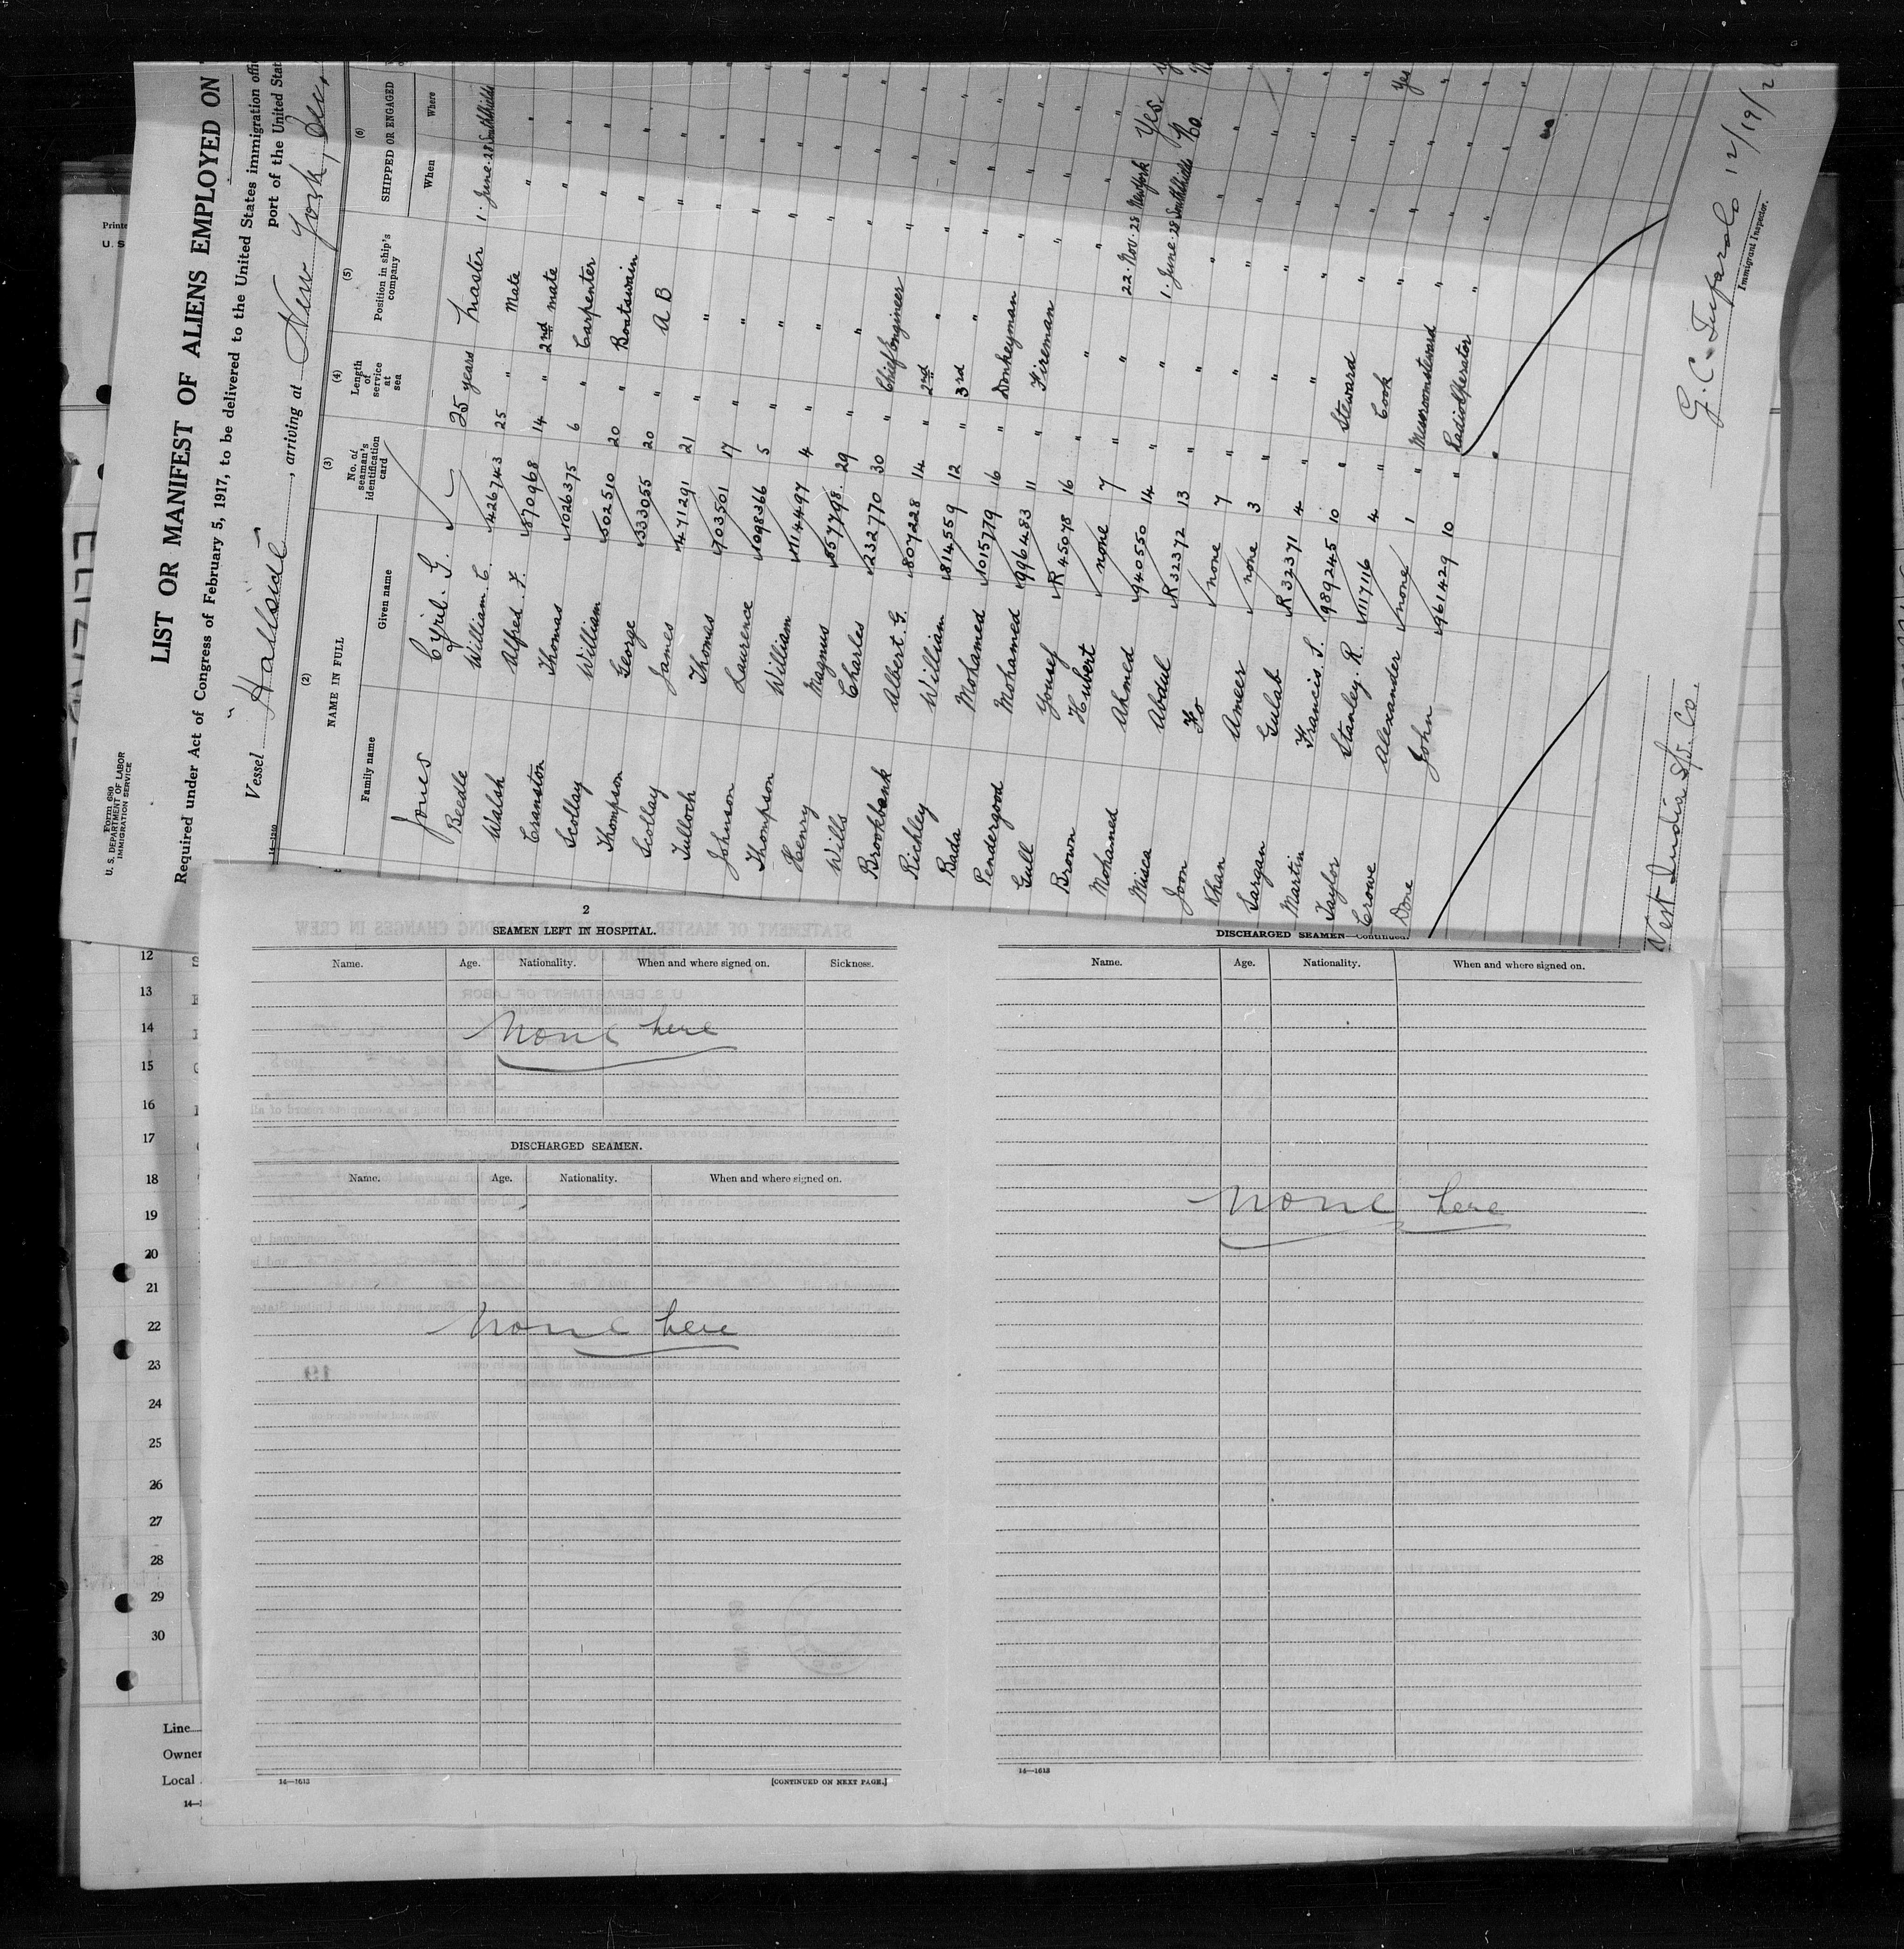 Form 680
U. S. DEPARTMENT OF LABOR
IMMIGRATION SERVICE
LIST OR MANIFEST OF ALIENS EMPLOYED ON
Required under Act of Congress of February 5, 1917, to be delivered to the United States immigration
port of the United
Vessel "Hallside", arriving at New York, Dec.
14—1240
(2) (3) (4) (5) (6)
NAME IN FULL No. of seaman's identification card Length of service at sea Position in ship's company SHIPPED OR ENGAGED
Family name Given name When Where
Jones Cyril. G. 25 years Master 1. June. 28 Southshields
Beedle William. C. 426743 25 " Mate " "
Walsh Alfred. F. 870968 14 " 2nd mate " "
Cranston Thomas 1026375 6 " Carpenter " "
Scollay William 502510 20 " Boatswain " "
Thompson George 333055 20 " A B " "
Scollay James 471291 21 " " " "
Tulloch Thomas 703501 17 " " " "
Johnson Laurence 1098366 5 " " " "
Thompson William 1114497 4 " " " "
Henry Magnus 557798. 29 " " " "
Wills Charles 232770 30 " Chief Engineer " "
Brookbank Albert G. 807228 14 " 2nd " " "
Richley William 814559 12 " 3rd " " "
Bada Mohamed 1015779 16 " Donkeyman " "
Pendergood Mohamed 996483 11 " Fireman " "
Gull Yousef R 45078 16 " " " "
Brown Hubert none 7 " " 22. Nov. 28 New York Yes.
Mohamed Ahmed 940550 14 " " 1. June. 28 Southshields No
Misca Abdul R 32372 13 " " " "
Joon Fo none 7 " " " "
Khan Ameer none 3 " " " "
Sargan Gulab R 32371 4 " " " "
Martin Francis. S. 989245 10 " Steward " "
Taylor Stanley. R. 1117116 4 " Cook " " Yes
Crowe Alexander none 1 " Messroomsteward " "
Done John 961429 10 " Radio Operator " "
West India S/S. Co.
G. C. 12/19/2
Immigrant Inspector.
Printe
U. S
12
13
14
15
16
17
18
19
20
21
22
23
24
25
26
27
28
29
30
Line
Owner
Local
14—
2
SEAMEN LEFT IN HOSPITAL.
Name. Age. Nationality. When and where signed on. Sickness.
None here
DISCHARGED SEAMEN.
Name. Age. Nationality. When and where signed on.
None here
14—1613 [CONTINUED ON NEXT PAGE.]
DISCHARGED SEAMEN—Continued.
Name. Age. Nationality. When and where signed on.
None here
14—1613